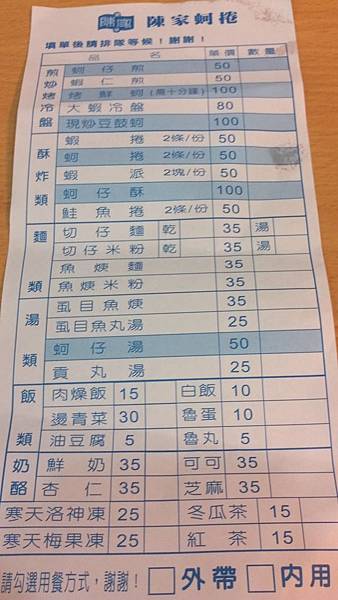 陳家 陳家蚵捲
填單後請排隊等候！謝謝！
品 名 單價 數量
煎炒烤冷盤
蚵仔煎 50
蝦仁煎 50
烤鮮蚵(需十分鐘) 100
大蝦冷盤 80
現炒豆鼓蚵 100
酥炸類
蝦捲 2條/份 50
蚵捲 2條/份 50
蝦派 2塊/份 50
蚵仔酥 100
鮭魚捲 2條/份 50
麵類
切仔麵 乾 35 湯
切仔米粉 乾 35 湯
魚焿麵 35
魚焿米粉 35
湯類
虱目魚焿 35
虱目魚丸湯 25
蚵仔湯 50
貢丸湯 25
飯類
肉燥飯 15 白飯 10
燙青菜 30 魯蛋 10
油豆腐 5 魯丸 5
奶酪
鮮奶 35 可可 35
杏仁 35 芝麻 35
寒天洛神凍 25 冬瓜茶 15
寒天梅果凍 25 紅茶 15
請勾選用餐方式，謝謝！ □外帶 □內用